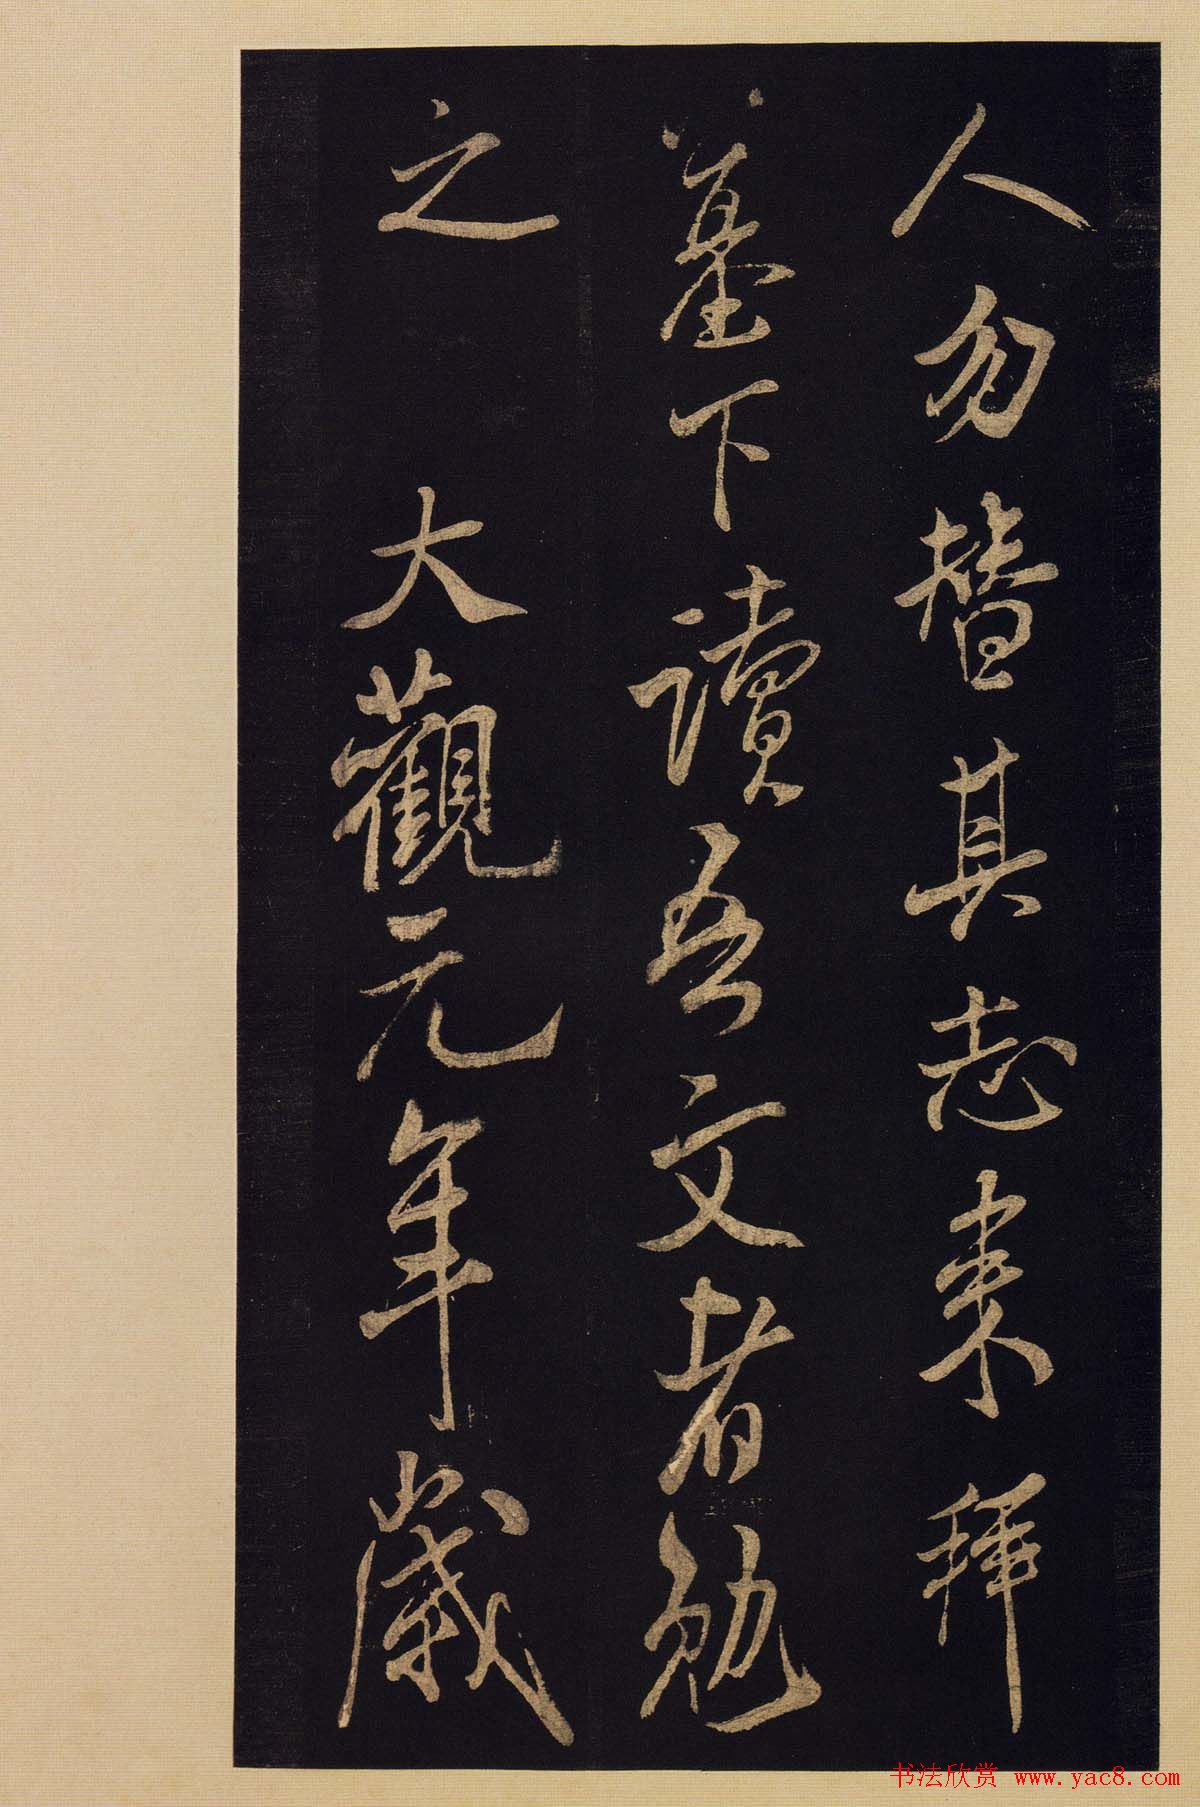 人勿替其志來拜
墓下讀吾文者勉
之 大觀元年歲
书法欣赏 www.yac8.com